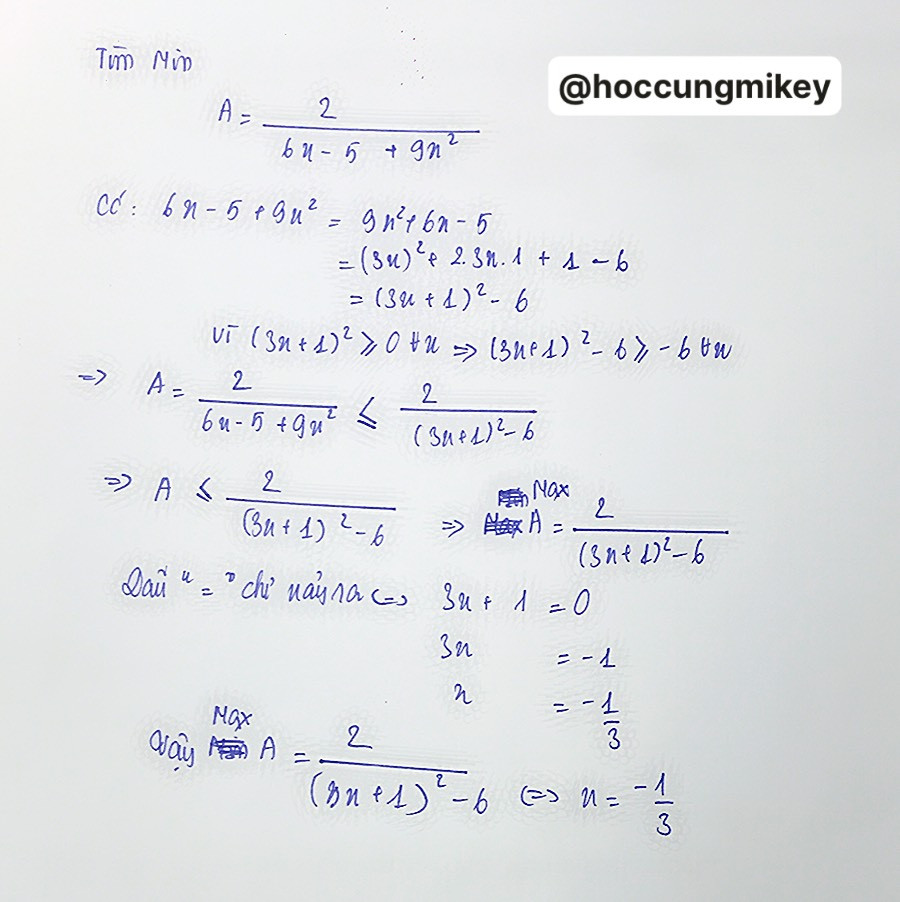 Tìm Min
@hoccungmikey
A = 2 / (6x - 5 + 9x²)
Có: 6x - 5 + 9x² = 9x² + 6x - 5
= (3x)² + 2.3x.1 + 1 - 6
= (3x + 1)² - 6
Vì (3x+1)² ⩾ 0 ∀x => (3x+1)² - 6 ⩾ -6 ∀x
=> A = 2 / (6x - 5 + 9x²) ⩽ 2 / ((3x+1)² - 6)
=> A ⩽ 2 / ((3x+1)² - 6) => Max A = 2 / ((3x+1)² - 6)
Dấu "=" chỉ xảy ra <=> 3x + 1 = 0
3x = -1
x = -1/3
Vậy Max A = 2 / ((3x+1)² - 6) <=> x = -1/3